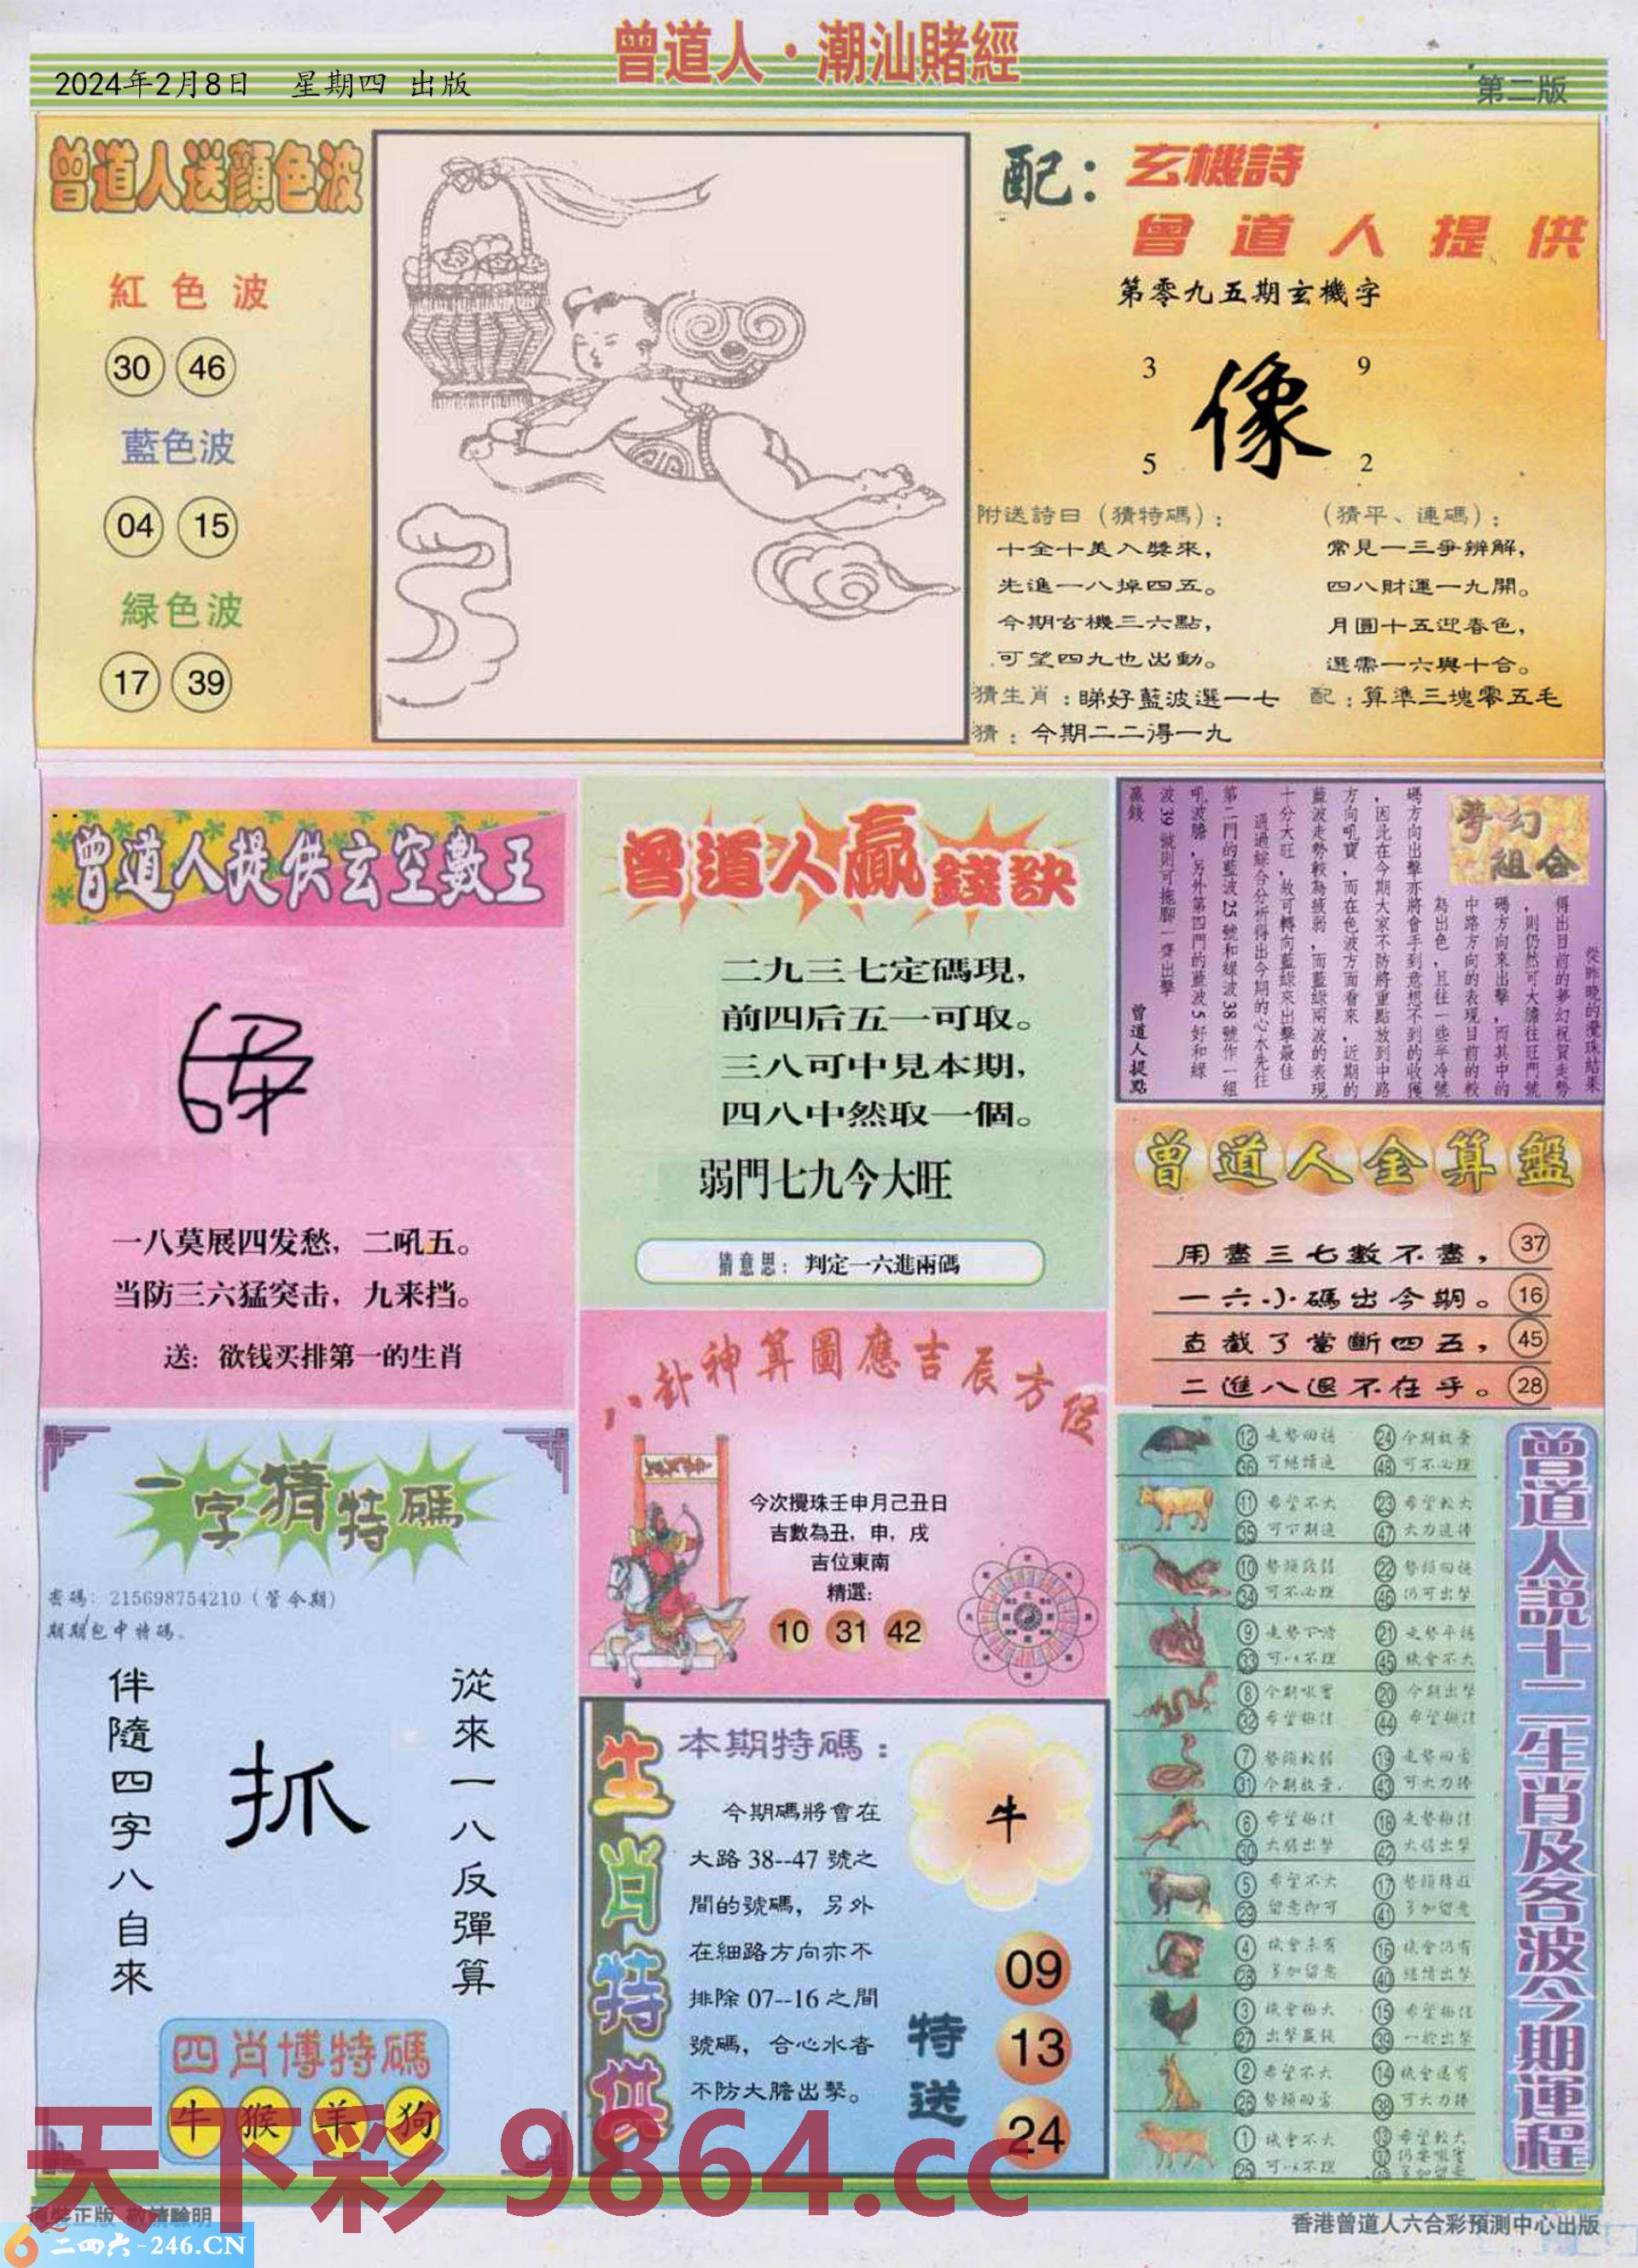 曾道人·潮汕賭經
2024年2月8日 星期四 出版
第二版
曾道人送顔色波
紅色波
30 46
藍色波
04 15
緑色波
17 39
配：玄機詩
曾道人提供
第零九五期玄機字
3 9
像
5 2
附送詩曰（猜特碼）：
十全十美入獎來，
先進一八掉四五。
今期玄機三六點，
可望四九也出動。
（猜平、連碼）：
常見一三爭辨解，
四八財運一九開。
月圓十五迎春色，
選需一六與十合。
猜生肖：睇好藍波選一七 配：算準三塊零五毛
猜：今期二二得一九
曾道人提供玄空數王
一八莫展四发愁，二吼五。
当防三六猛突击，九来挡。
送：欲钱买排第一的生肖
曾道人贏錢訣
二九三七定碼現，
前四后五一可取。
三八可中見本期，
四八中然取一個。
弱門七九今大旺
猜意思：判定一六進兩碼
夢幻組合
從昨晚的攪珠結果
得出目前的夢幻祝賀走勢
，則仍然可大膽往旺門號
碼方向來出擊，而其中的
中路方向的表現目前的較
為出色，且往一些半冷號
碼方向出擊亦將會手到意想不到的收獲
，因此在今期大家不防將重點放到中路
方向吼寶，而在色波方面看來，近期的
藍波走勢較為疲弱，而藍綠兩波的表現
十分大旺，故可轉向藍綠來出擊最佳
通過綜合分析得出今期的心水先往
第二門的藍波25號和綠波38號作一組
吼波膽，另外第四門的藍波5好和綠
波39號則可拖腳一齊出擊
贏錢
曾道人提點
曾道人金算盤
用盡三七數不盡， 37
一六小碼出今期。 16
直截了當斷四五， 45
二進八退不在乎。 28
八卦神算圖應吉辰方位
今次攪珠壬申月己丑日
吉數為丑，申，戌
吉位東南
精選：
10 31 42
一字猜特碼
密碼：215698754210（管今期）
期期包中特碼。
從來一八反彈算
抓
伴隨四字八自來
四肖博特碼
牛 猴 羊 狗
生肖特供
本期特碼：
今期碼將會在
大路38--47號之
間的號碼，另外
在細路方向亦不
排除07--16之間
號碼，合心水者
不防大膽出擊。
牛
特送
09
13
24
曾道人説十二生肖及各波今期運程
12 走勢回落 24 今期放棄
36 可繼續進 48 可不必理
11 希望不大 23 希望較大
35 可下期進 47 大力追捧
10 22
34 可不必理 46 仍可出擊
9 21 走勢平穩
33 可以不理 45 機會不大
8 20 今期出擊
32 希望極佳 44 希望極佳
7 19
31 今期放棄， 43 可大力捧
6 希望極佳 18 走勢極佳
30 大膽出擊 42 大膽出擊
5 希望不大 17
29 留意即可 41 多加留意
4 機會未有 16 機會仍有
28 多加留意 40 繼續出擊
3 機會極大 15 希望極佳
27 出擊贏錢 39 一於出擊
2 希望不大 14 機會還有
26 38 可大力捧
1 機會不大 13 希望較大
25 可以不理 37
天下彩 9864.cc
原裝正版 敬請驗明
二四六-246.CN
香港曾道人六合彩預測中心出版